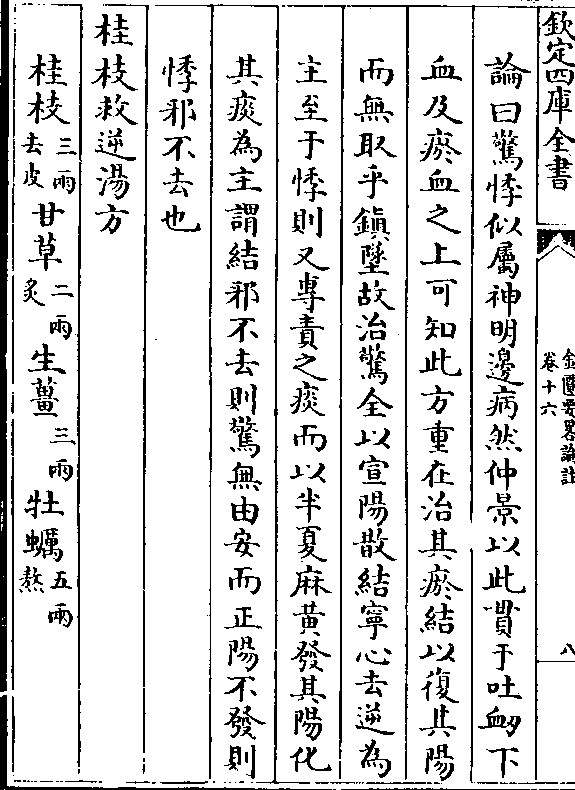 欽定四庫全書
金匱要畧論註
卷十六
八
論曰驚悸似屬神明邊病然仲景以此貫于吐衂下
血及瘀血之上可知此方重在治其瘀結以復其陽
而無取乎鎮墜故治驚全以宣陽散結寧心去逆為
主至于悸則又專責之痰而以半夏麻黃發其陽化
其痰為主謂結邪不去則驚無由安而正陽不發則
悸邪不去也
桂枝救逆湯方
桂枝三兩去皮 甘草二兩炙 生薑三兩 牡蠣五兩熬